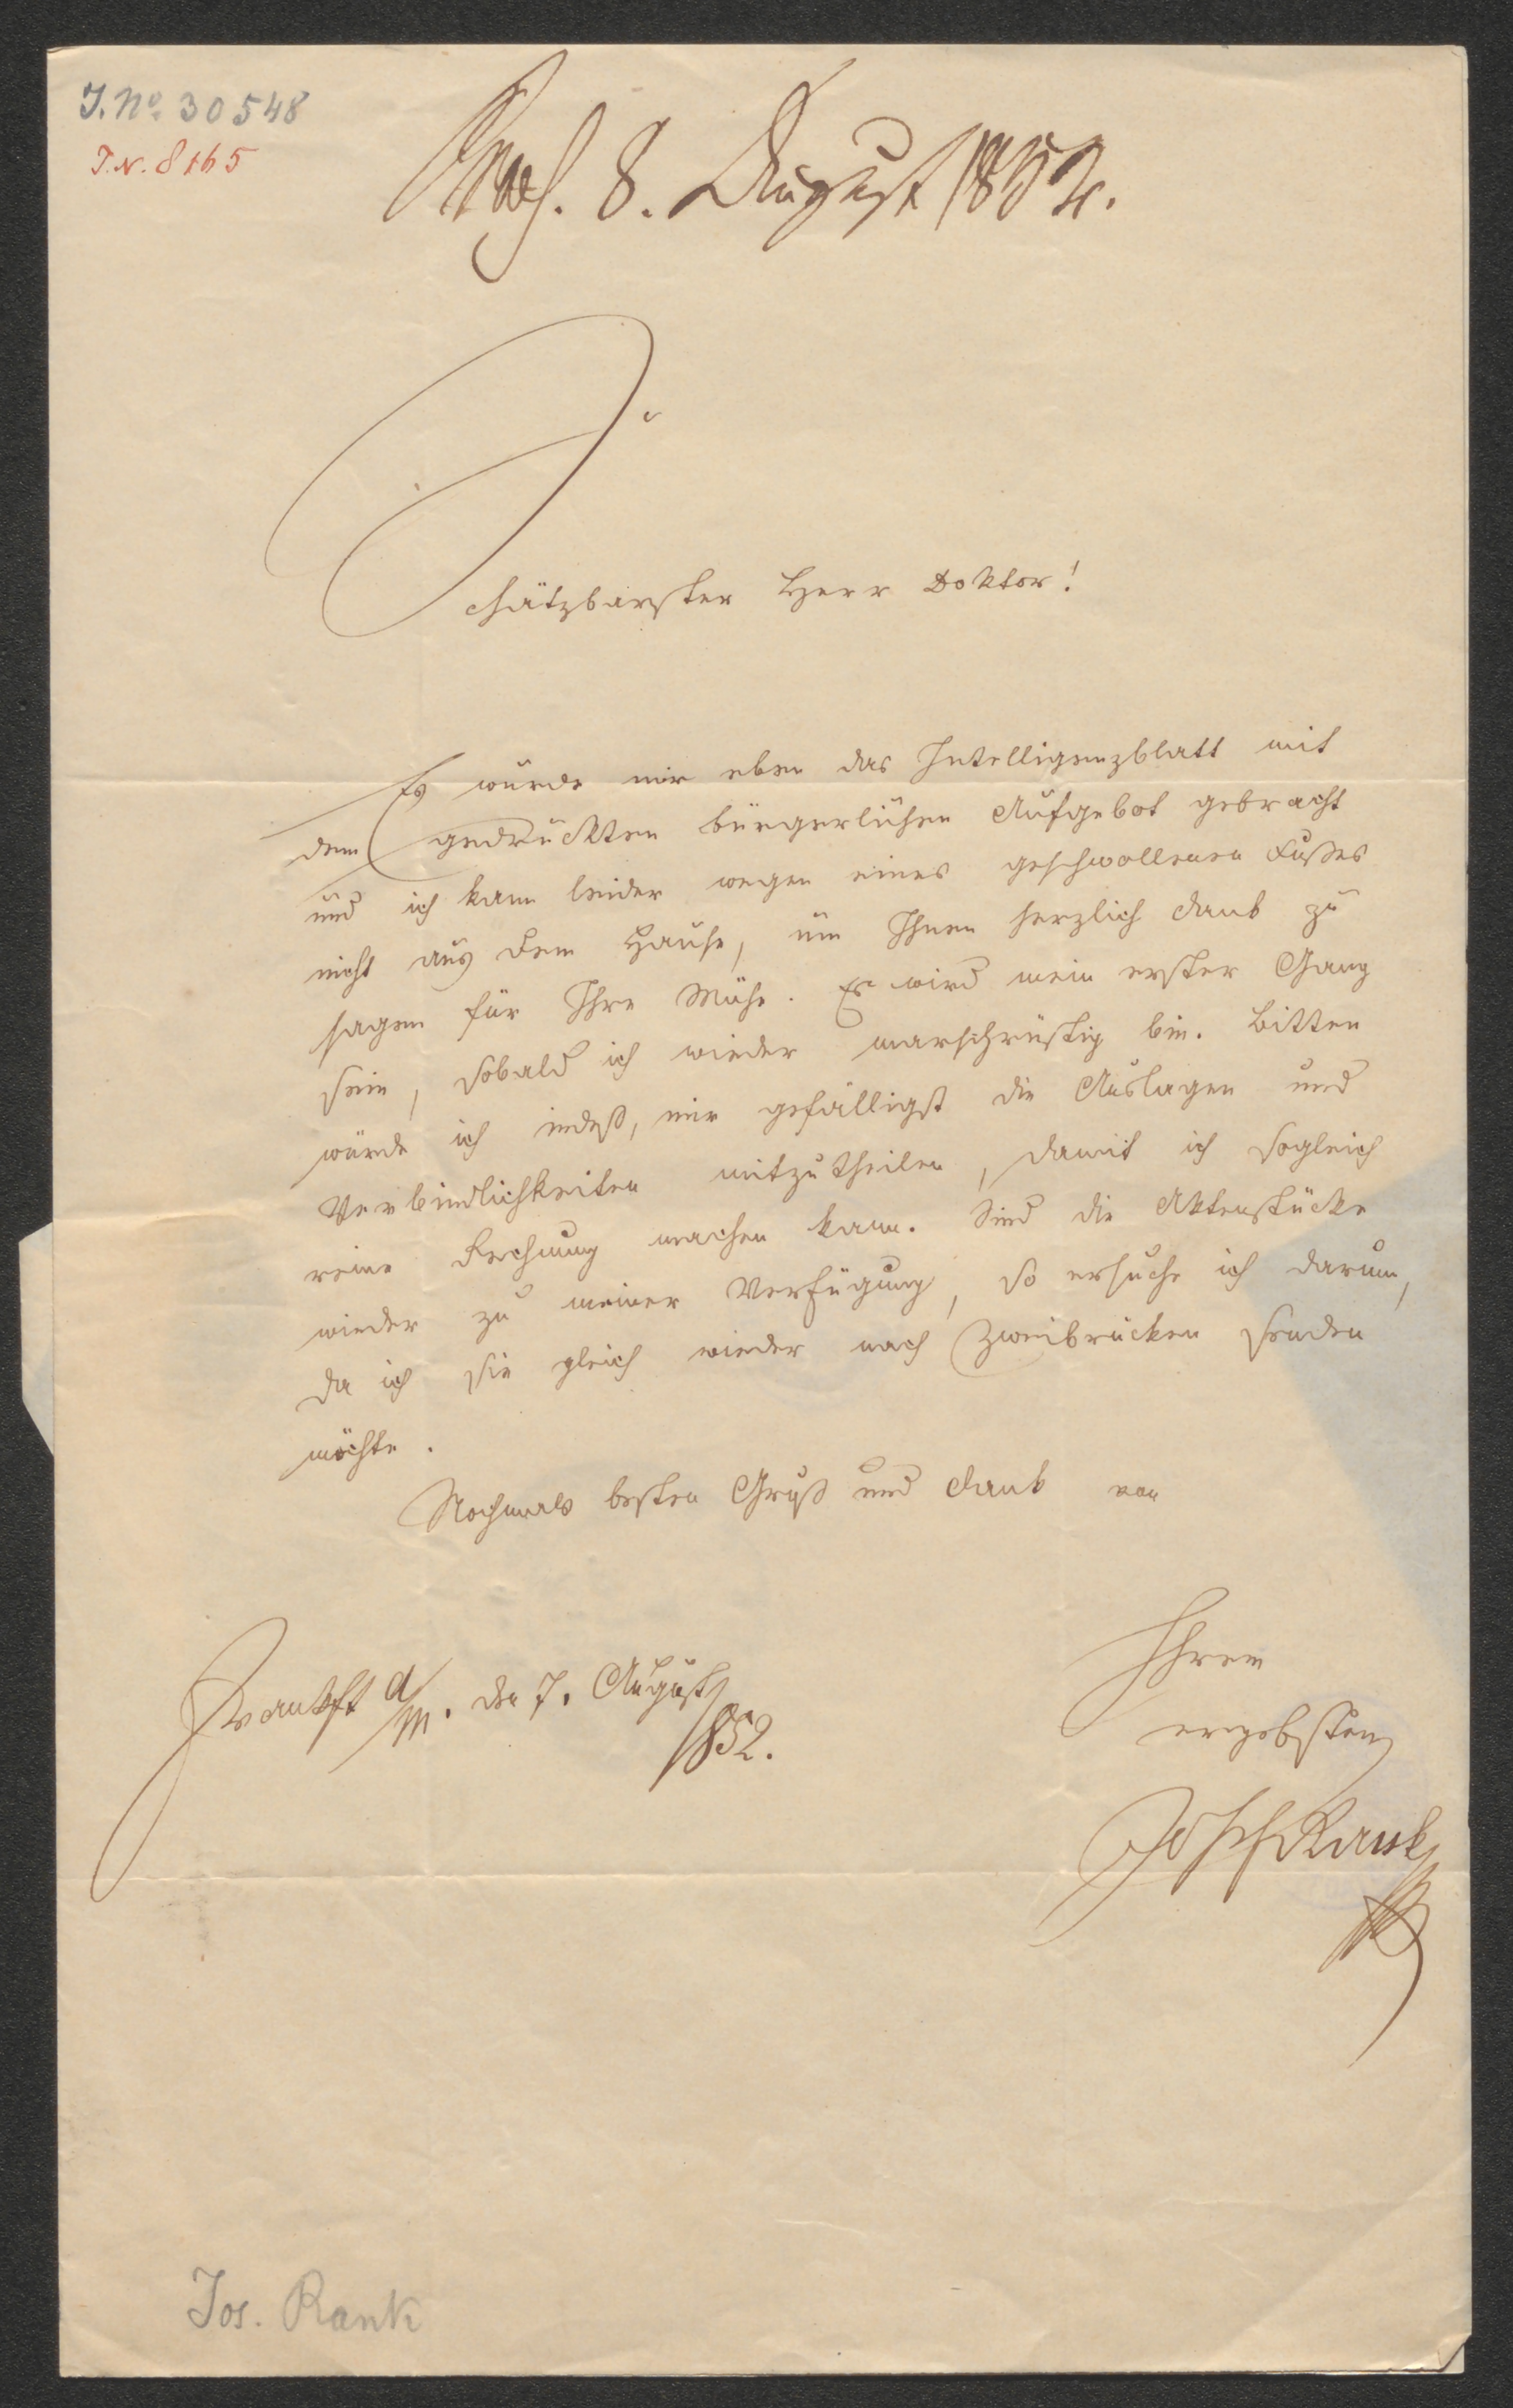 J. No. 30548
J. N. 8165
8. August 1852.
Schätzbarster Herr Doktor!
Es wurde mir eben das Intelligenzblatt mit
dem gedruckten bürgerlichen Aufgebot gebracht
und ich kann leider wegen eines geschwollenen Fußes
nicht aus dem Hause, um Ihnen herzlich Dank zu
sagen für Ihre Mühe. Es wird mein erster Gang
sein, sobald ich wieder marschrüstig bin. Bitten
würde ich indeß, mir gefälligst die Auslagen und
Verbindlichkeiten mitzutheilen, damit ich sogleich
reine Rechnung machen kann. Sind die Aktenstücke
wieder zu meiner Verfügung, so ersuche ich darum,
da ich sie gleich wieder nach Zweibrücken senden
möchte.
Nochmals besten Gruß und Dank von
Ihrem
ergebsten
Josef Rank
Frankft a/M. den 7. August
1852.
Jos. Rank